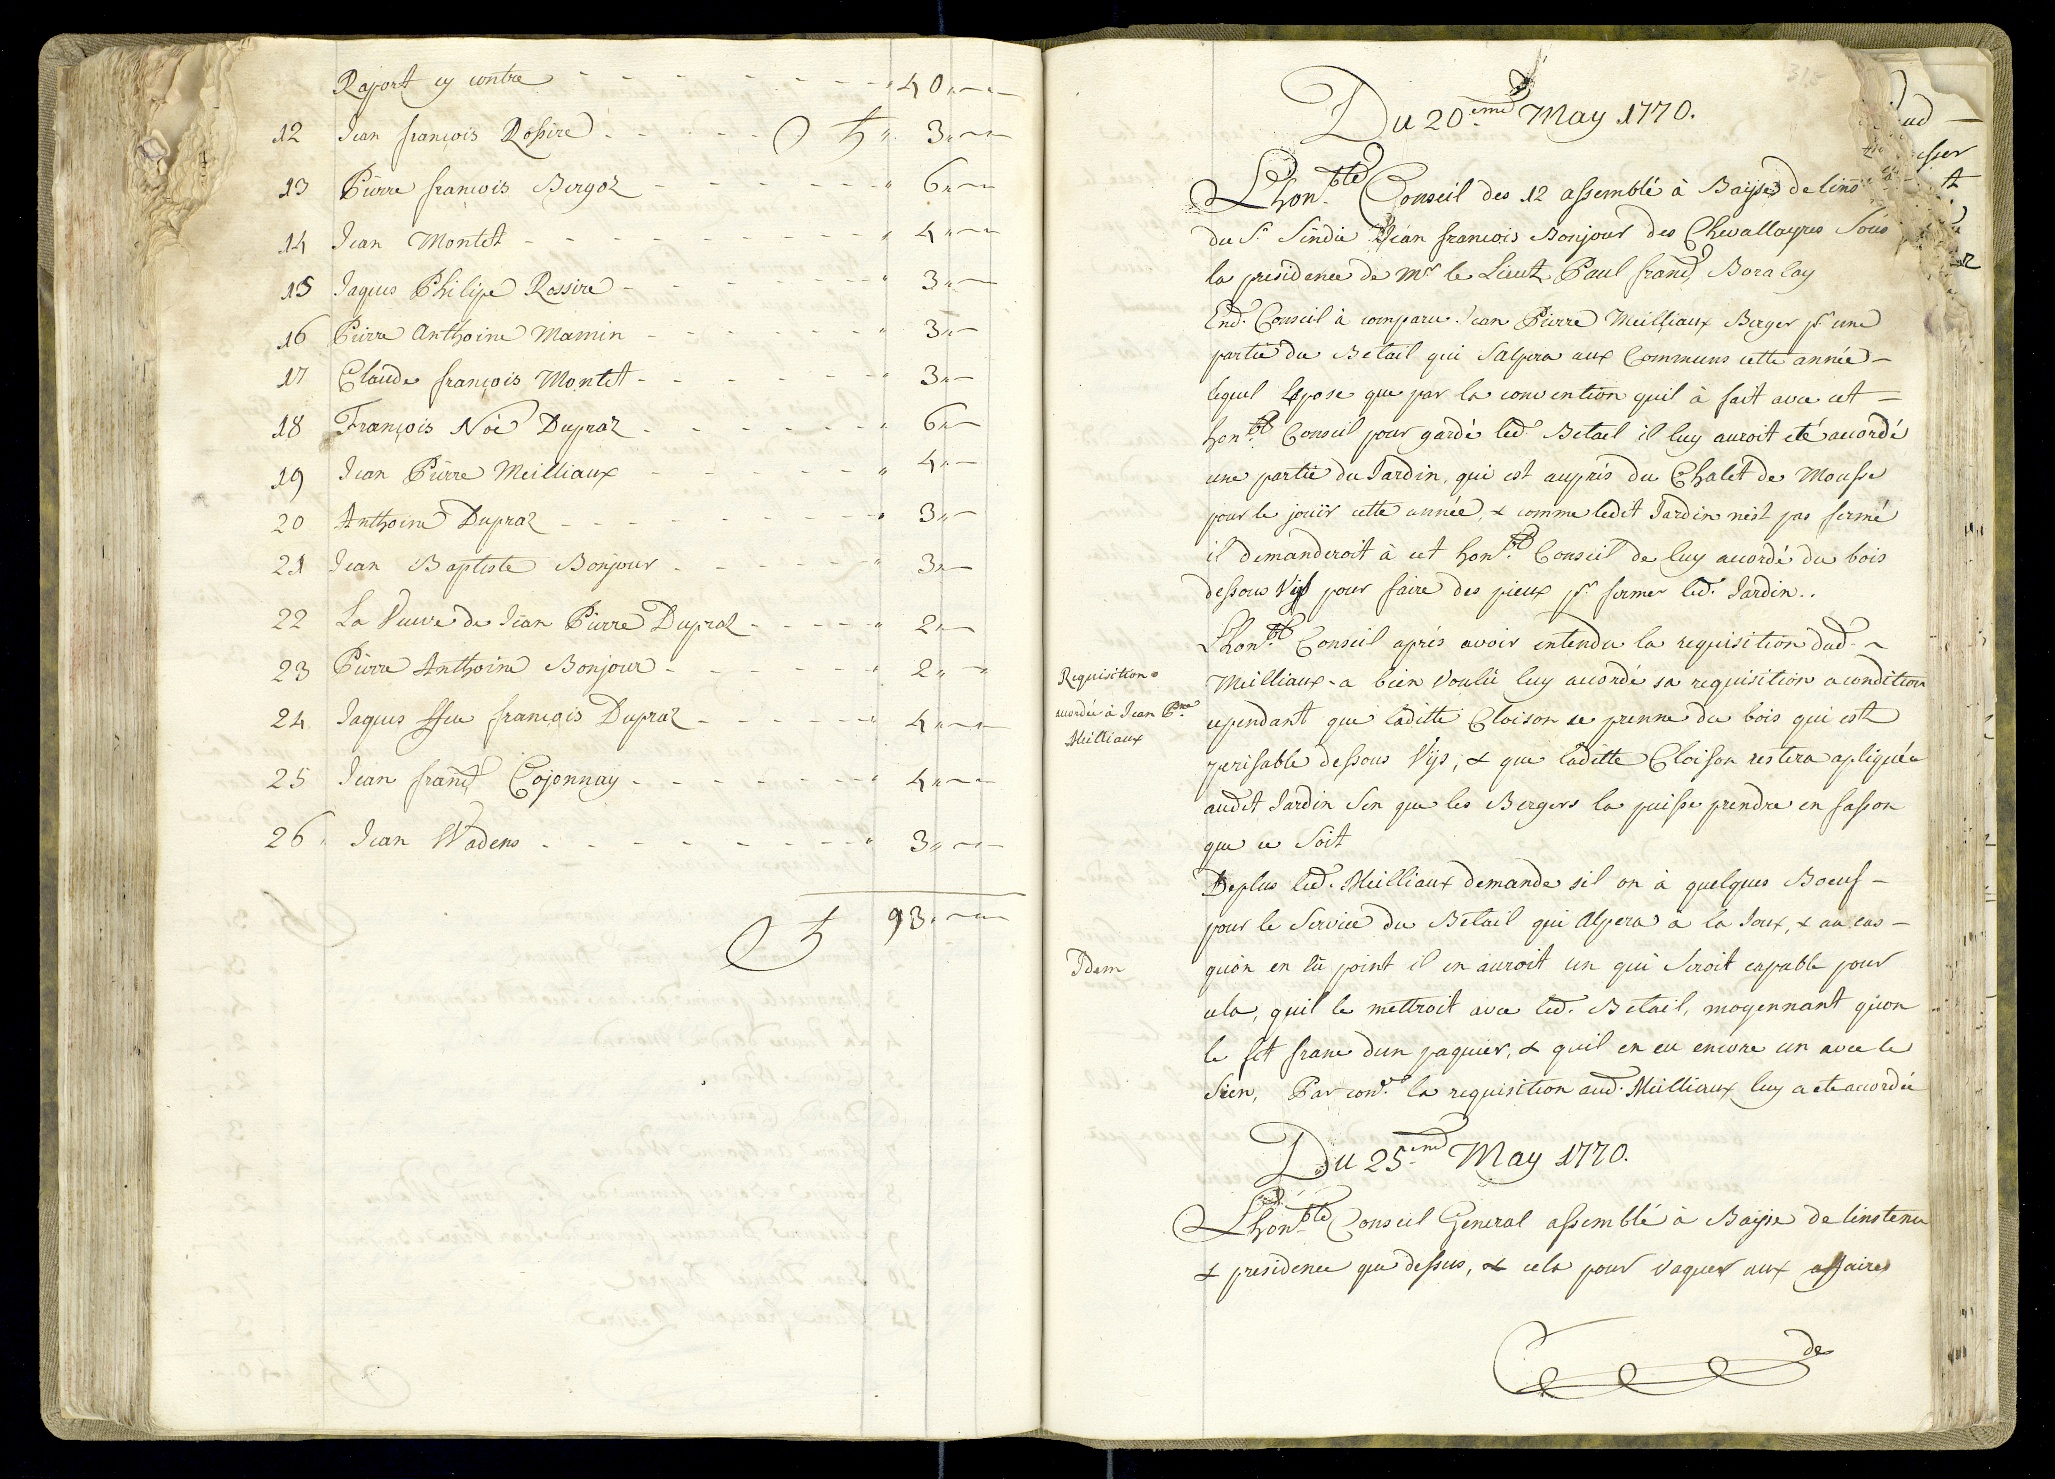 Raport cy contre - - - - - - " 40 " — —
12 Jean françois Rossire - - - - " 3 " — —
13 Pierre francois Bergoz - - - - - " 6 " — —
14 Jean Montet - - - - - - - " 4 " — —
15 Jaques Philipe Rossire - - - - - " 3 " — —
16 Pierre Anthoine Mamin - - - - - " 3 " —
17 Claude françois Montet - - - - - " 3 " —
18 François Noé Dupraz - - - - - " 6 " —
19 Jean Pierre Meilliaux - - - - - " 4 " —
20 Anthoine Dupraz - - - - - - " 3 " —
21 Jean Baptiste Bonjour - - - - " 3 " —
22 La Veuve de Jean Pierre Dupraz - - - " 2 " —
23 Pierre Anthoine Bonjour - - - - " 2 " "
24 Jaques ffeu françois Dupraz - - - - " 4 " — —
25 Jean franç Cojonnay - - - - - " 4 " — —
26 Jean Wadens - - - - - - - " 3 " — —
93 " — —
315
Du 20.eme May 1770.
Lhon.ble Conseil des 12 assemblé à Bayse de lins
du Sr Sindic Jean francois Bonjour des Chevallayres Sous
la presidence de Mr le Lieut Paul franç Boralay
End. Conseil à comparu Jean Pierre Meilliaux Berger pr une
partie du Betail qui Salpera aux Communs cette année —
lequel Expose que par la convention quil à fait avec cet —
hon.ble Conseil pour gardé led. Betail il luy auroit eté accordé
une partie du Jardin, qui est auprés du Chalet de Mousse
pour le joüir cette année, & comme ledit Jardin nest pas fermé
il demanderoit à cet hon.ble Conseil de luy accordé du bois
dessous Vys pour faire des pieux pr fermer led. Jardin..
Lhon.ble Conseil aprés avoir entendu la requisition dud. ~
Requisition
accordée à Jean Pre
Meilliaux
Meilliaux - a bien Voulü luy accordé sa requisition a condition
cependant que laditte Cloison se prenne du bois qui est
perisable dessous Vys, & que laditte Cloison restera apliquée
audit Jardin Sen que les Bergers la puisse prendre en fasson
que ce Soit
Deplus led. Meilliaux demande sil on à quelques Boeuf —
pour le Service du Bétail qui Alpera à la Joux, & au cas —
Idem
quon en eü point il en auroit un qui Seroit capable pour
cela, quil le mettroit avec led. Betail, moyennant quon
le fit franc dun paquier, & quil en eu encore un avec le
Sien, Par cons. la requisition aud. Meilliaux luy a eté accordée
Du 25.eme May 1770.
Lhon.ble Conseil General assemblé à Bayse de linstence
& presidence que dessus, & cela pour vaquer aux affaires
de